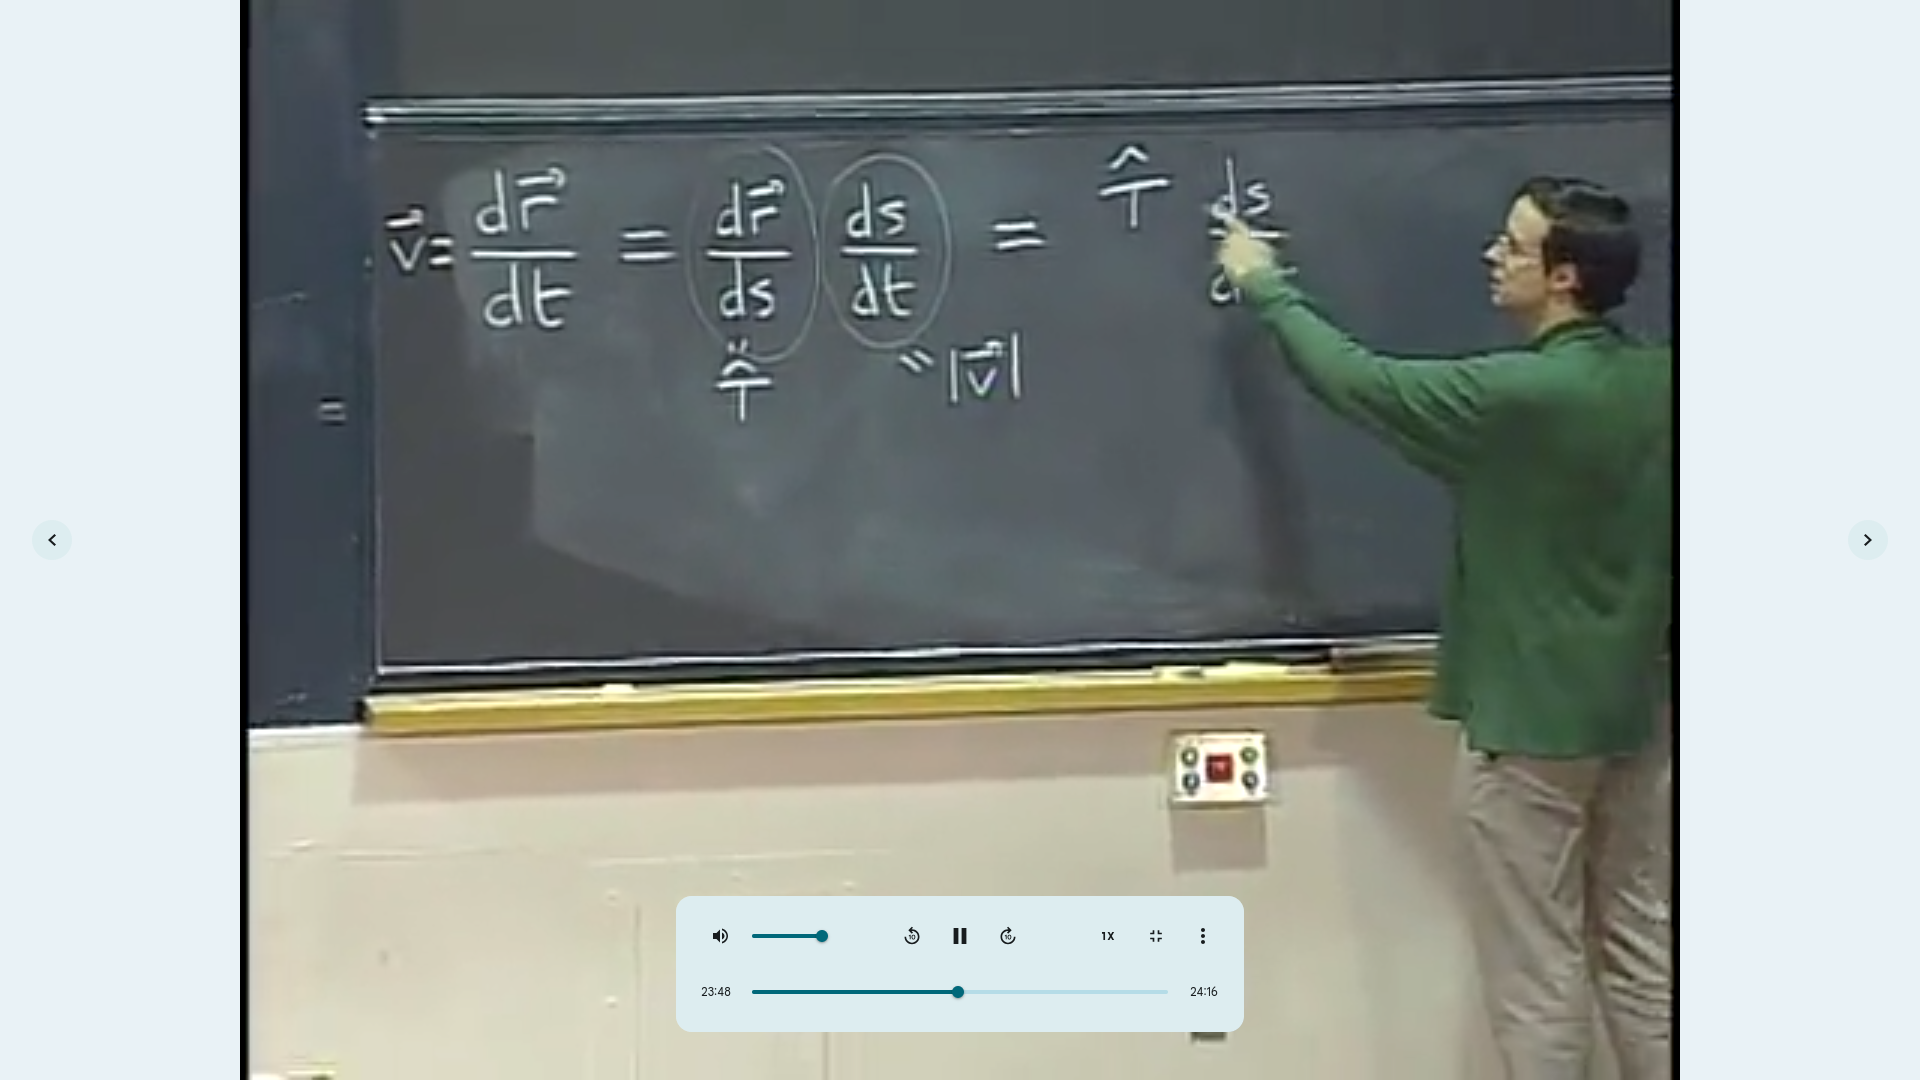 v⃗ = dr⃗/dt = dr⃗/ds ds/dt = T̂ ds/dt
" T̂ = |v⃗|
=
10 10 1X
23:48 24:16